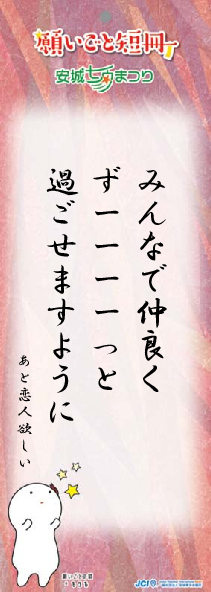 願いごと短冊
安城七夕まつり
みんなで仲良く
ずーーーーっと
過ごせますように
あと恋人欲しい
願いごと短冊
JCI